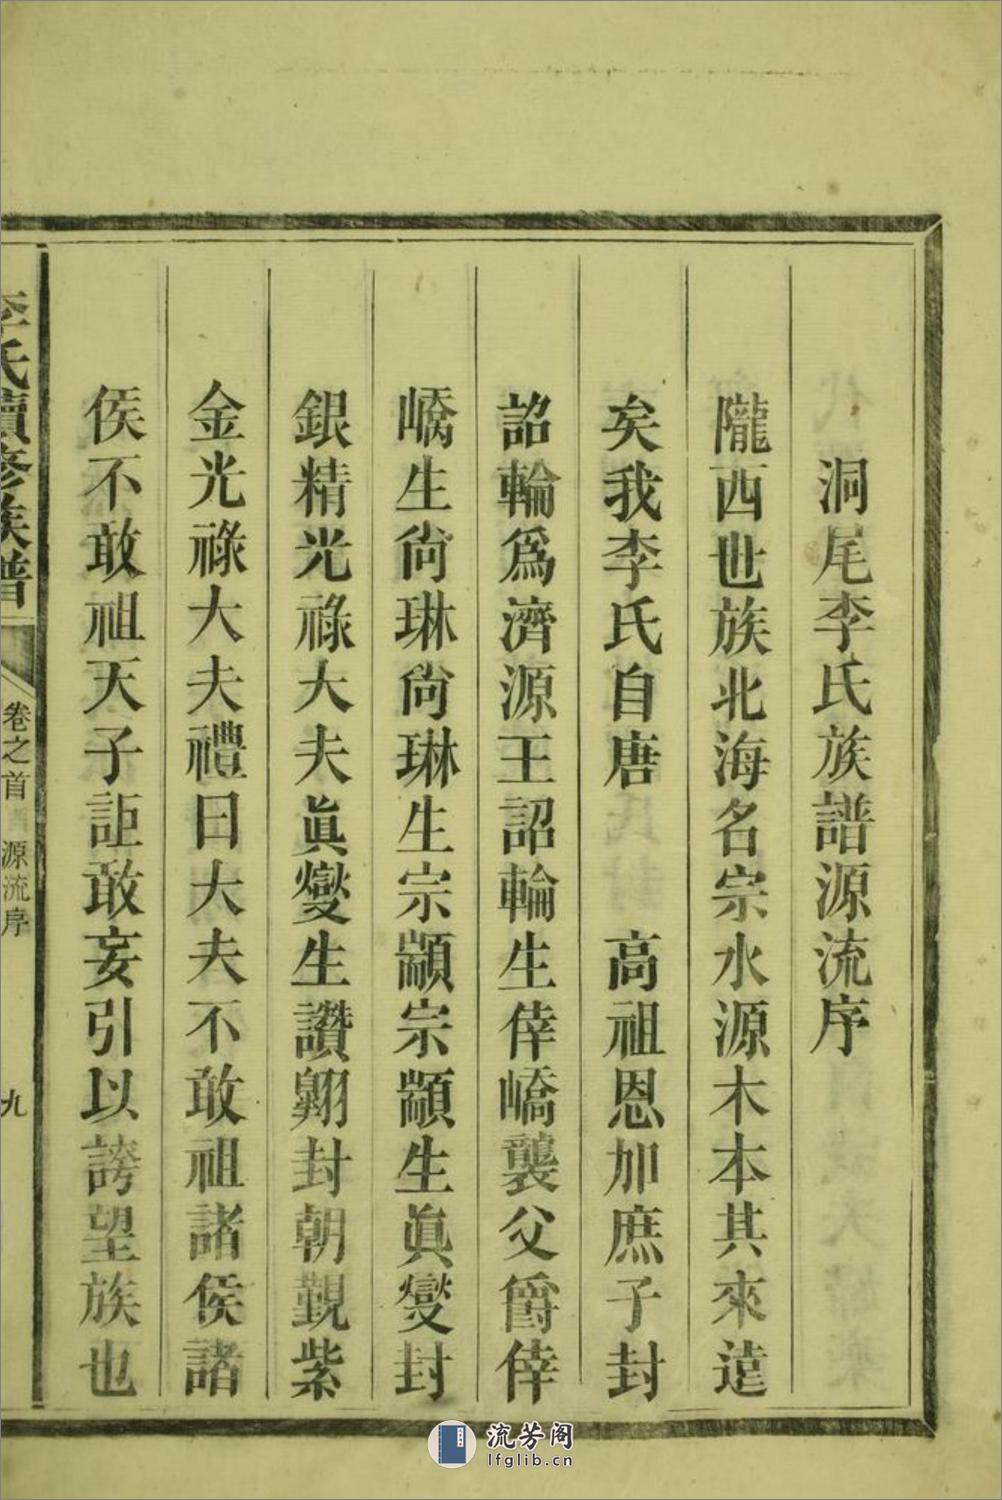 洞尾李氏族譜源流序
隴西世族北海名宗水源木本其來遠
矣我李氏自唐　高祖恩加庶子封
詔輪爲濟源王詔輪生倖嶠襲父爵倖
嶠生尙琳尙琳生宗顓宗顓生眞燮封
銀精光祿大夫眞燮生讚翺封朝覲紫
金光祿大夫禮曰大夫不敢祖諸侯諸
侯不敢祖天子詎敢妄引以誇望族也
李氏續修族譜
卷之首
源流序
九
流芳阁
lfglib.cn